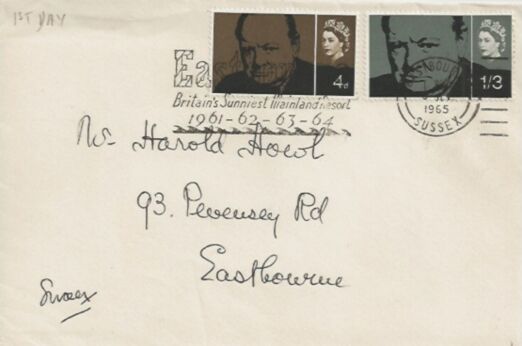 1ST DAY
4d
1/3
Ea
Britain's Sunniest Mainland Resort
1961-62-63-64
1965
SUSSEX
Mr Harold Howl
93. Pevensey Rd
Eastbourne
Sussex